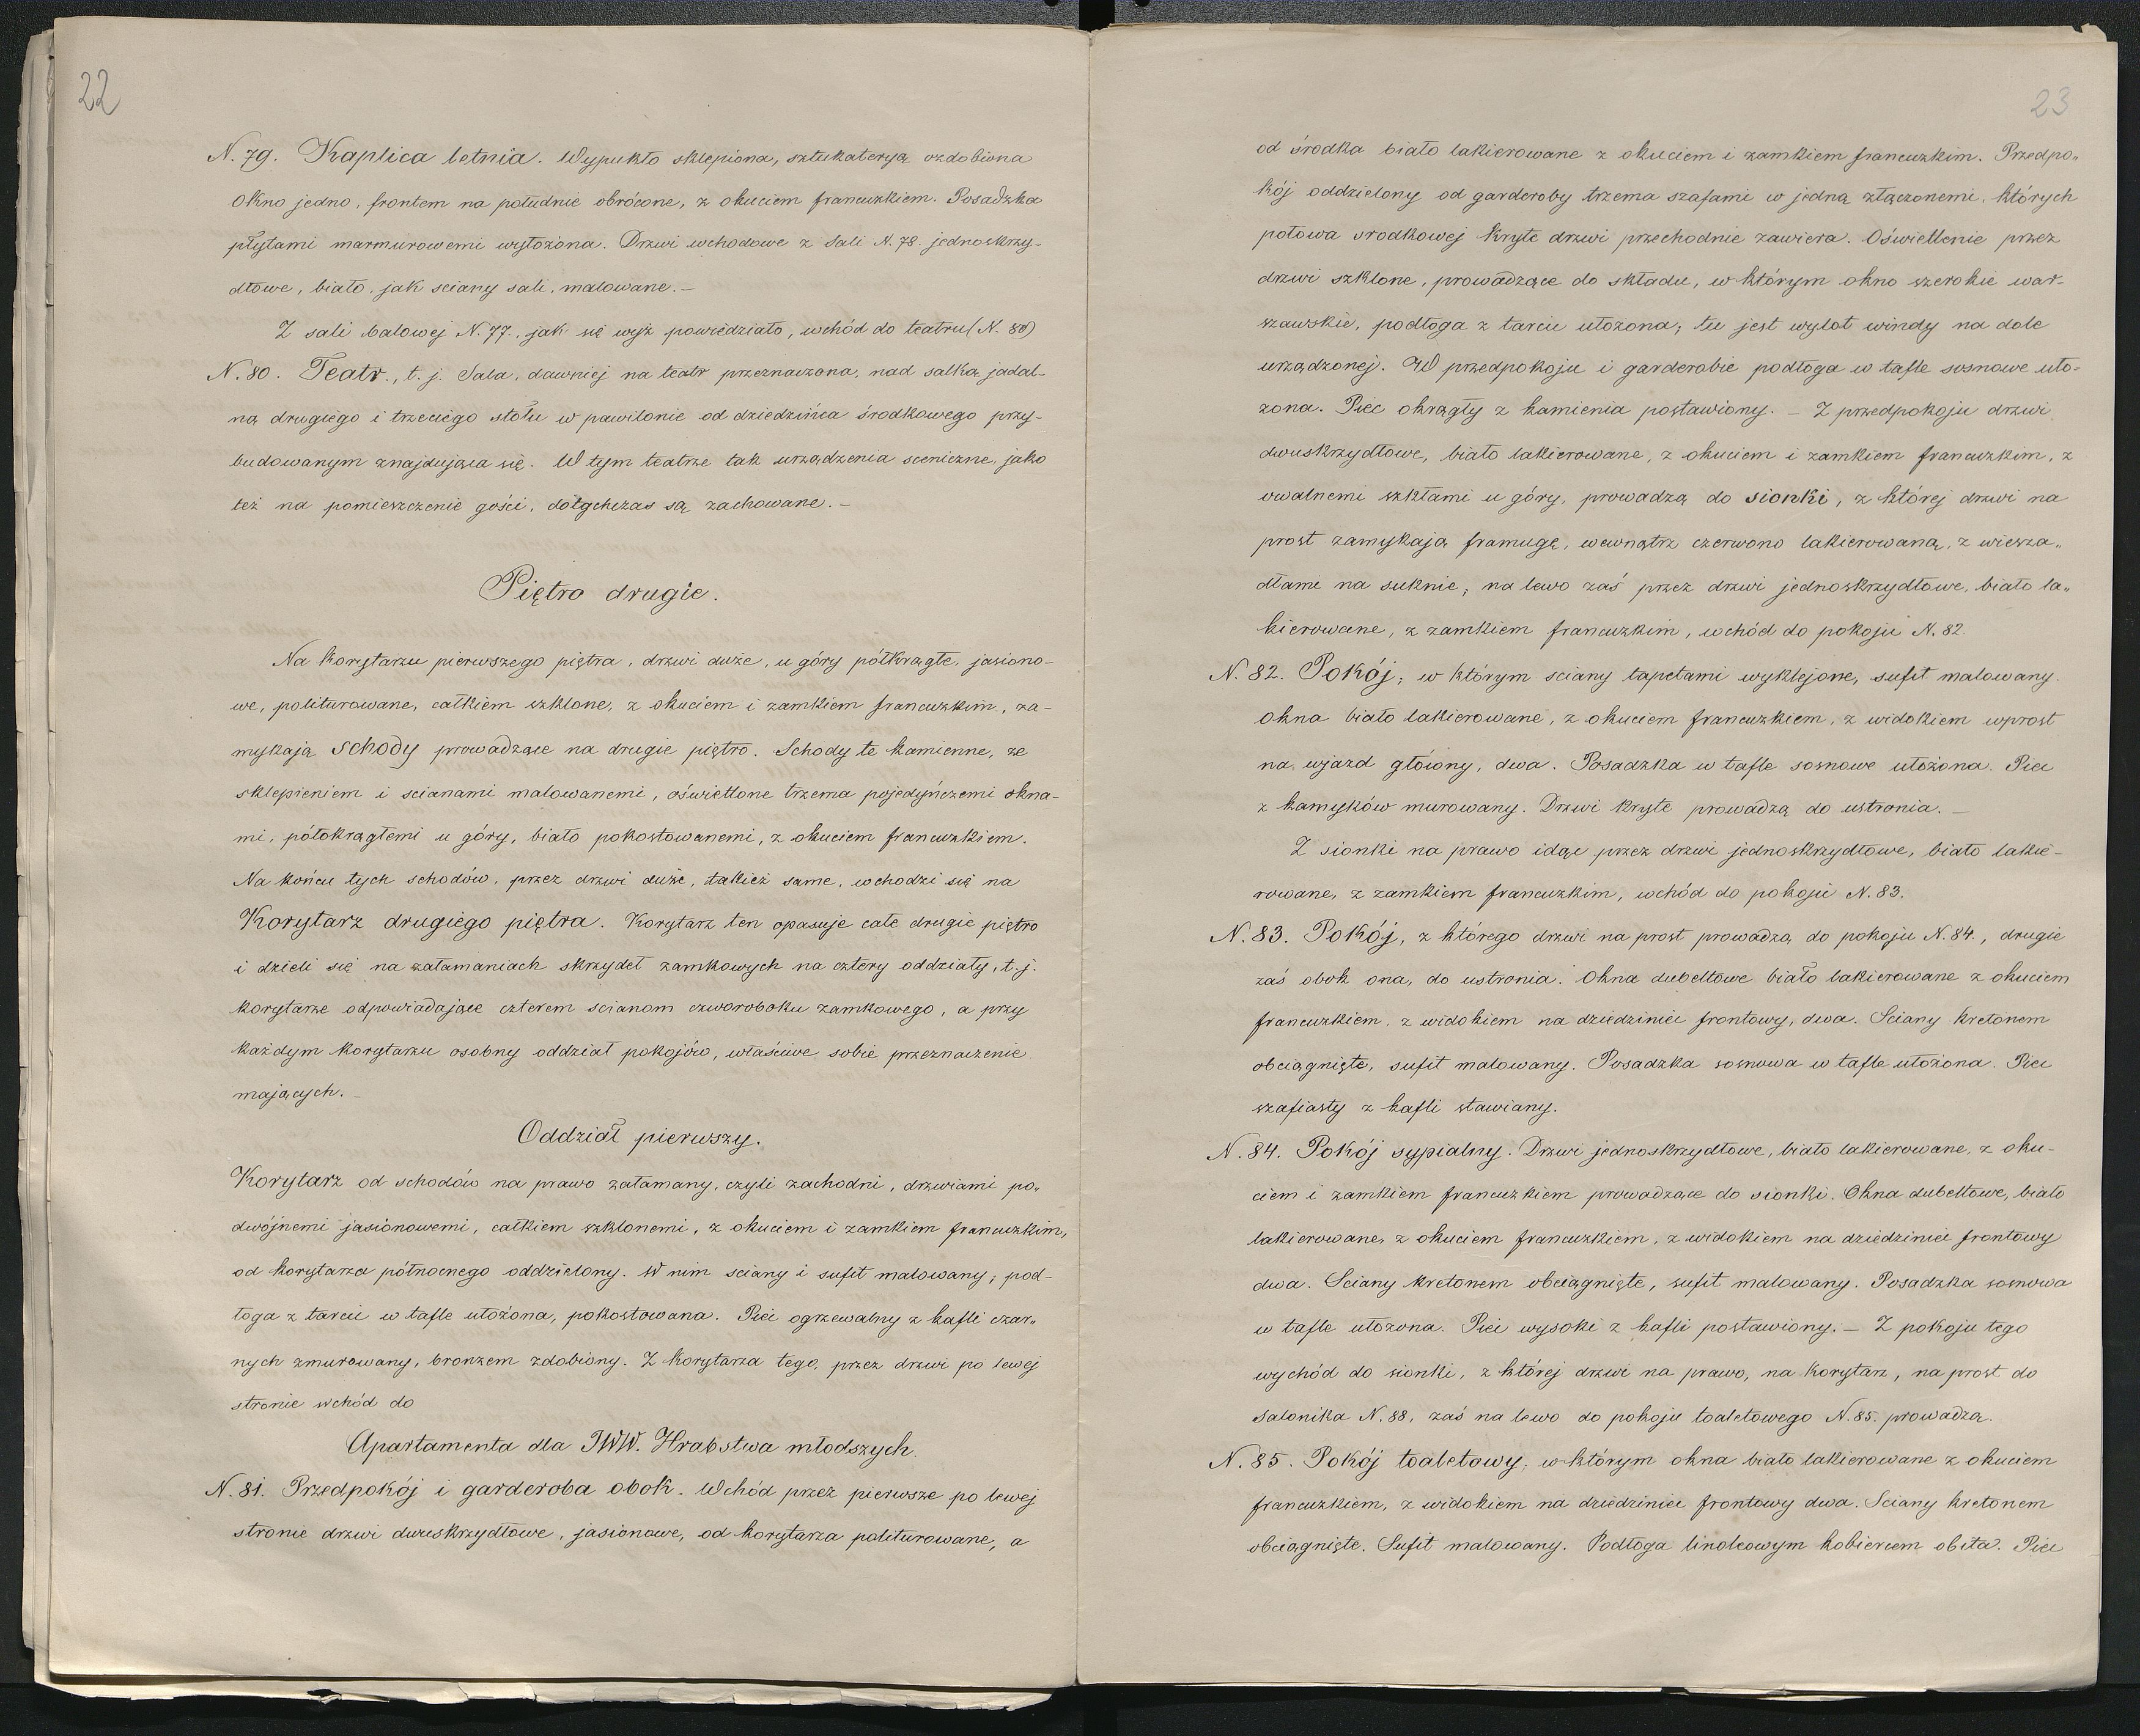 22
N. 79. Kaplica letnia. Wypukło sklepiona, sztukateryą ozdobiona
okno jedno, frontem na południe obrócone, z okuciem francuzkiem. Posadzka
płytami marmurowemi wyłożona. Drzwi wchodowe z Sali N. 78. jednoskrzy-
dłowe, biało, jak sciany sali, malowane. –
Z sali balowej N. 77., jak się wyż powiedziało, wchód do teatru (N. 80)
N. 80. Teatr., t. j. Sala, dawniej na teatr przeznaczona, nad salką jadal-
ną drugiego i trzeciego stołu w pawilonie od dziedzińca środkowego przy-
budowanym znajdująca się. W tym teatrze tak urządzenia sceniczne, jako
też na pomieszczenie gości, dotychczas są zachowane. –
Piętro drugie.
Na korytarzu pierwszego piętra, drzwi duże, u góry półkrągłe, jasiono-
we, politurowane, całkiem szklone, z okuciem i zamkiem francuzkim, za-
mykają schody prowadzące na drugie piętro. Schody te kamienne, ze
sklepieniem i scianami malowanemi, oświetlone trzema pojedyńczemi okna-
mi, półokrągłemi u góry, biało pokostowanemi, z okuciem francuzkiem.
Na końcu tych schodów, przez drzwi duże, takież same, wchodzi się na
Korytarz drugiego piętra. Korytarz ten opasuje całe drugie piętro
i dzieli się na załamaniach skrzydeł zamkowych na cztery oddziały, t. j.
korytarze odpowiadające czterem scianom czworoboku zamkowego, a przy
każdym korytarzu osobny oddział pokojów, właściwe sobie przeznaczenie
mających. –
Oddział pierwszy.
Korytarz od schodów na prawo załamany, czyli zachodni, drzwiami po„
dwójnemi jasionowemi, całkiem szklonemi, z okuciem i zamkiem francuzkim,
od korytarza północnego oddzielony. W nim sciany i sufit malowany; pod-
łoga z tarcic w tafle ułożona, pokostowana. Piec ogrzewalny z kafli czar„
nych zmurowany, bronzem zdobiony. Z korytarza tego, przez drzwi po lewej
stronie wchód do
Apartamenta dla JWW. Hrabstwa młodszych.
N. 81. Przedpokój i garderoba obok. Wchód przez pierwsze po lewej
stronie drzwi dwuskrzydłowe, jasionowe, od korytarza politurowane, a
23
od środka biało lakierowane z okuciem i zamkiem francuzkim. Przedpo„
kój oddzielony od garderoby trzema szafami w jedną złączonemi, których
połowa srodkowej kryte drzwi przechodnie zawiera. Oświetlenie przez
drzwi szklone, prowadzące do składu, w którym okno szerokie war-
szawskie, podłoga z tarcic ułożona; tu jest wylot windy na dole
urządzonej. W przedpokoju i garderobie podłoga w tafle sosnowe uło-
żona. Piec okrągły z kamienia postawiony. – Z przedpokoju drzwi
dwuskrzydłowe, biało lakierowane, z okuciem i zamkiem francuzkim, z
owalnemi szkłami u góry, prowadzą do sionki, z której drzwi na
prost zamykają framugę, wewnątrz czerwono lakierowaną, z wiesza„
dłami na suknie; na lewo zaś przez drzwi jednoskrzydłowe, biało la„
kierowane, z zamkiem francuzkim, wchód do pokoju N. 82.
N. 82. Pokój; w którym sciany tapetami wyklejone, sufit malowany.
okna biało lakierowane, z okuciem francuzkiem, z widokiem wprost
na wjazd główny, dwa. Posadzka w tafle sosnowe ułożona. Piec
z kamyków murowany. Drzwi kryte prowadzą do ustronia. –
Z sionki na prawo idąc przez drzwi jednoskrzydłowe, biało lakie-
rowane, z zamkiem francuzkim, wchód do pokoju N. 83.
N. 83. Pokój, z którego drzwi na prost prowadzą do pokoju N. 84., drugie
zaś obok ona, do ustronia. Okna dubeltowe biało lakierowane z okuciem
francuzkiem, z widokiem na dziedziniec frontowy, dwa. Sciany kretonem
obciągnięte, sufit malowany. Posadzka sosnowa w tafle ułożona. Piec
szafiasty z kafli stawiany.
N. 84. Pokój sypialny. Drzwi jednoskrzydłowe, biało lakierowane, z oku-
ciem i zamkiem francuzkiem prowadzące do sionki. Okna dubeltowe, biało
lakierowane, z okuciem francuzkiem, z widokiem na dziedziniec frontowy
dwa. Sciany kretonem obciągnięte, sufit malowany. Posadzka sosnowa
w tafle ułożona. Piec wysoki z kafli postawiony. – Z pokoju tego
wychód do sionki, z której drzwi na prawo, na korytarz, na prost do
salonika N. 88, zaś na lewo do pokoju toaletowego N. 85. prowadzą.
N. 85. Pokój toaletowy, w którym okna biało lakierowane z okuciem
francuzkiem, z widokiem na dziedziniec frontowy dwa. Sciany kretonem
obciągnięte. Sufit malowany. Podłoga linoleowym kobiercem obita. Piec